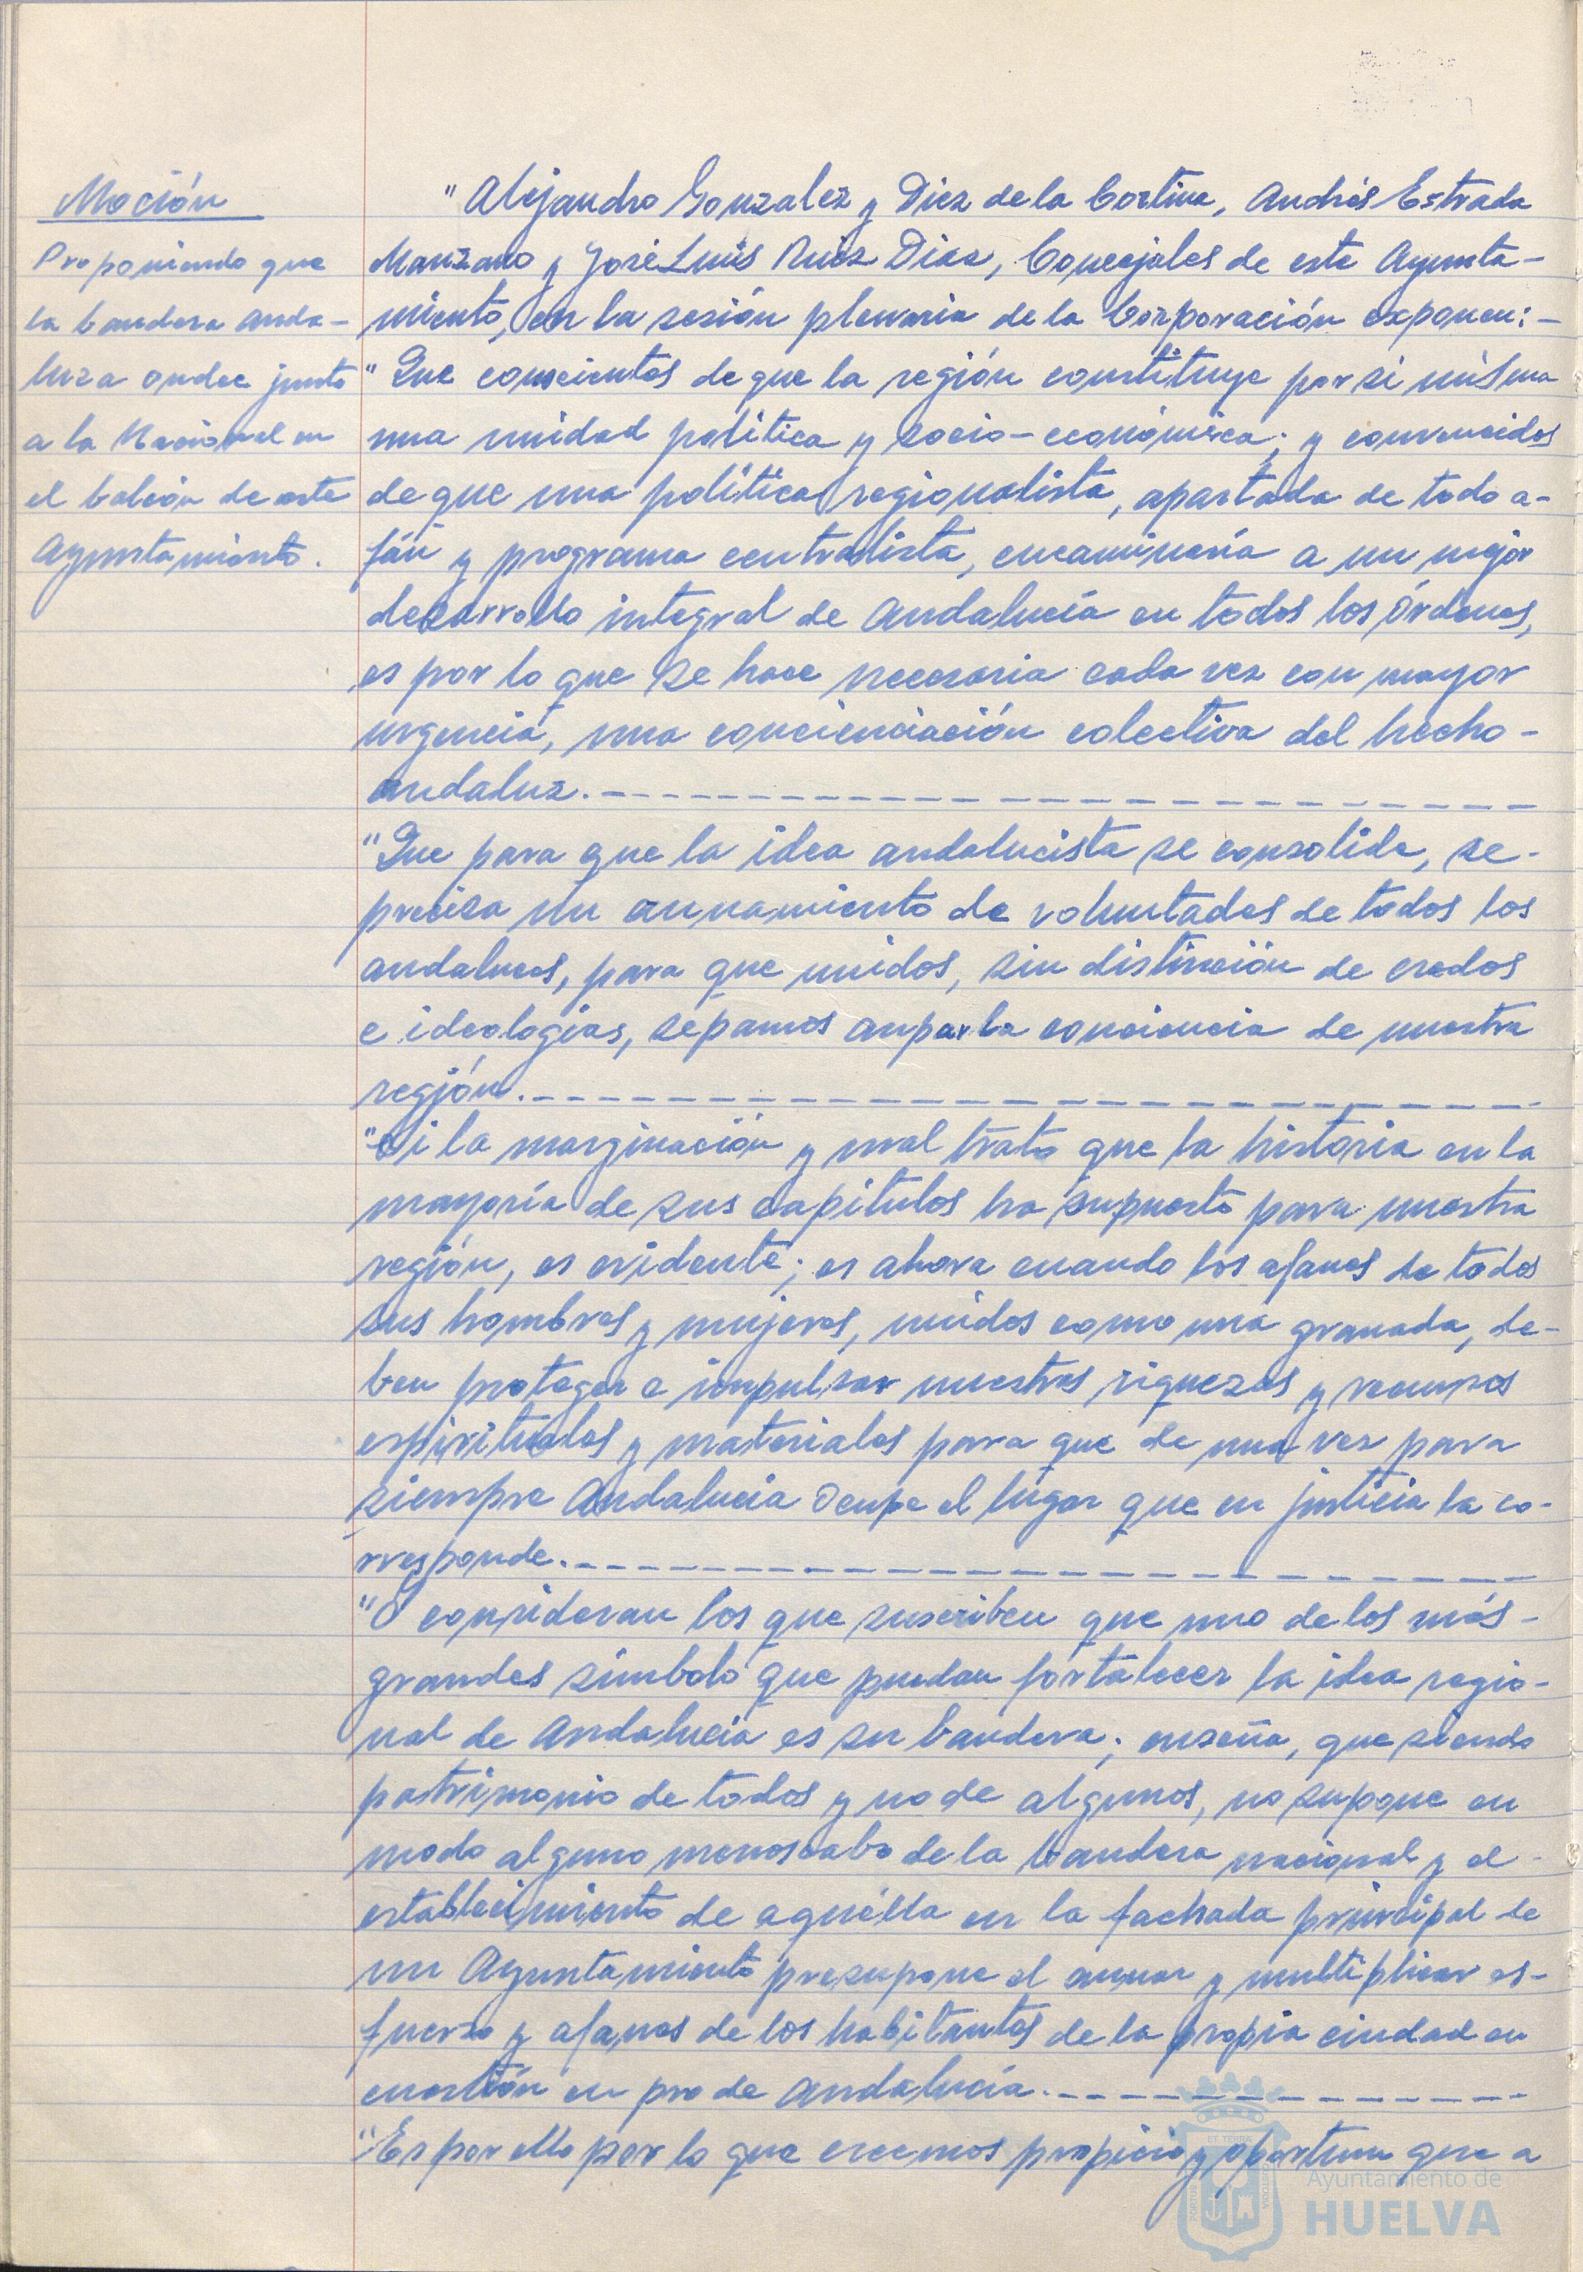 Moción
Proponiendo que
la bandera anda-
luza ondee junto
a la Nacional en
el balcón de este
Ayuntamiento.
"Alejandro Gonzalez y Diez de la Cortina, Andrés Estrada
Manzano y José Luis Ruiz Diaz, Concejales de este Ayunta-
miento, en la sesión plenaria de la Corporación exponen:-
"Que conscientes de que la región constituye por si misma
una unidad política y socio-económica; y convencidos
de que una política regionalista, apartada de todo a-
fán y programa centralista, encaminaría a un mejor
desarrollo integral de Andalucía en todos los órdenes,
es por lo que se hace necesaria cada vez con mayor
urgencia, una concienciación colectiva del hecho-
andaluz.-
"Que para que la idea andalucista se consolide, se-
precisa un aunamiento de voluntades de todos los
andaluces, para que unidos, sin distinción de credos
e ideologías, sepamos aupar la conciencia de nuestra
región.-
"Si la marginación y mal trato que la historia en la
mayoría de sus capítulos ha supuesto para nuestra
región, es evidente; es ahora cuando los afanes de todos
sus hombres y mujeres, unidos como una granada, de-
ben proteger e impulsar nuestras riquezas y recursos
espirituales y materiales para que de una vez para
siempre Andalucia ocupe el lugar que en justicia la co-
rresponde.-
"Y consideran los que suscriben que uno de los más-
grandes símbolo que puedan fortalecer la idea regio-
nal de Andalucia es su bandera; enseña, que siendo
patrimonio de todos y no de algunos, no supone en
modo alguno menoscabo de la bandera nacional y el-
establecimiento de aquélla en la fachada principal de
un Ayuntamiento presupone el aunar y multiplicar es-
fuerzo y afanes de los habitantes de la propia ciudad en
cuestión en pro de Andalucía.-
"Es por ello por lo que creemos propicio y oportuno que a
Ayuntamiento de
HUELVA